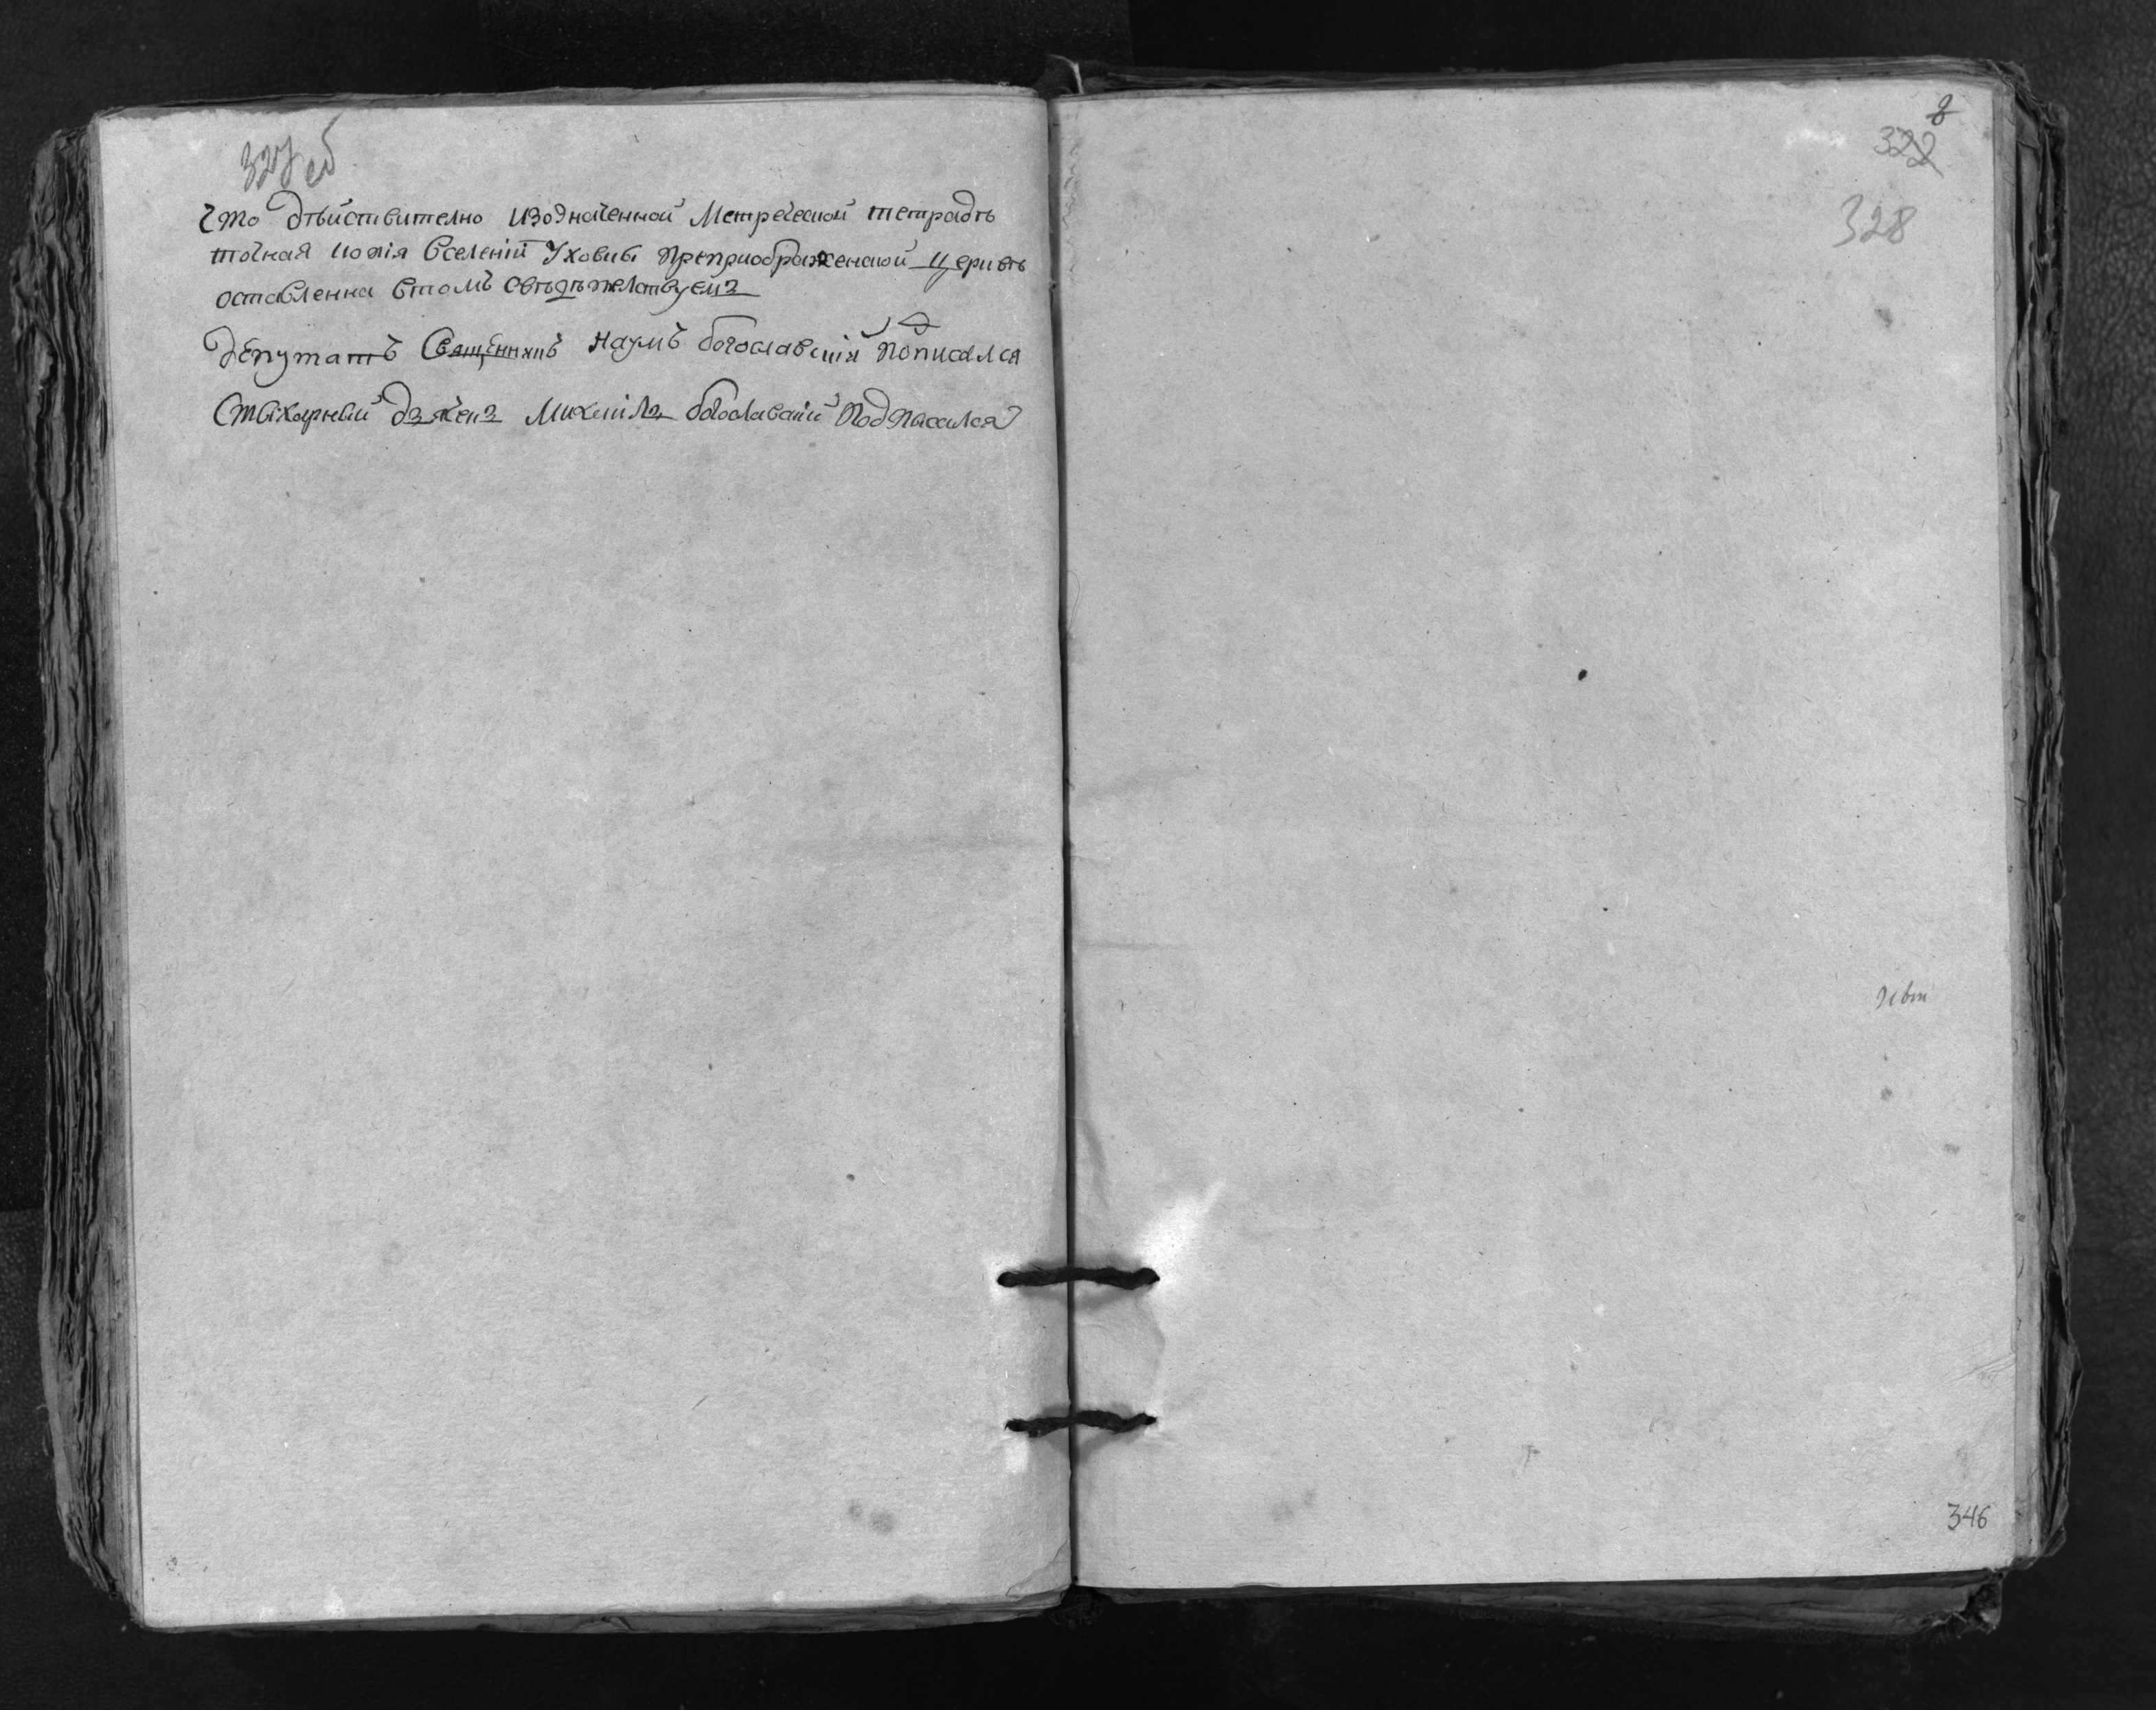 327 об
Что действително изодначенной Метреческой тетрадѣ
точная копія вселеній Уховки Преприображенской церквѣ
оставленна втомъ свѣдѣтелствуемъ
депутатъ Священникъ Наумъ богославскій Пописался
Стыхарный дьячекъ Михаила богославскій Подписался
8
322
328
346